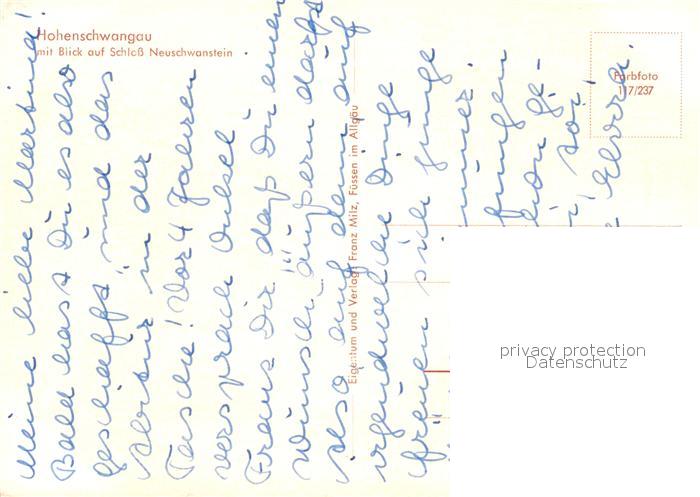 Hohenschwangau
mit Blick auf Schloß Neuschwanstein
Farbfoto
117/237
Eigentum und Verlag: Franz Milz, Füssen im Allgäu
Meine liebe Martina!
Bald hast Du es also
geschafft und das
Abitur in der
Tasche! Vor 4 Jahren
versprach Onkel
Franz Dir daß Du einen
Wunsch äußern darfst
Also auf denn auf
irgendwelche Dinge
freuen sich junge
privacy protection
Datenschutz